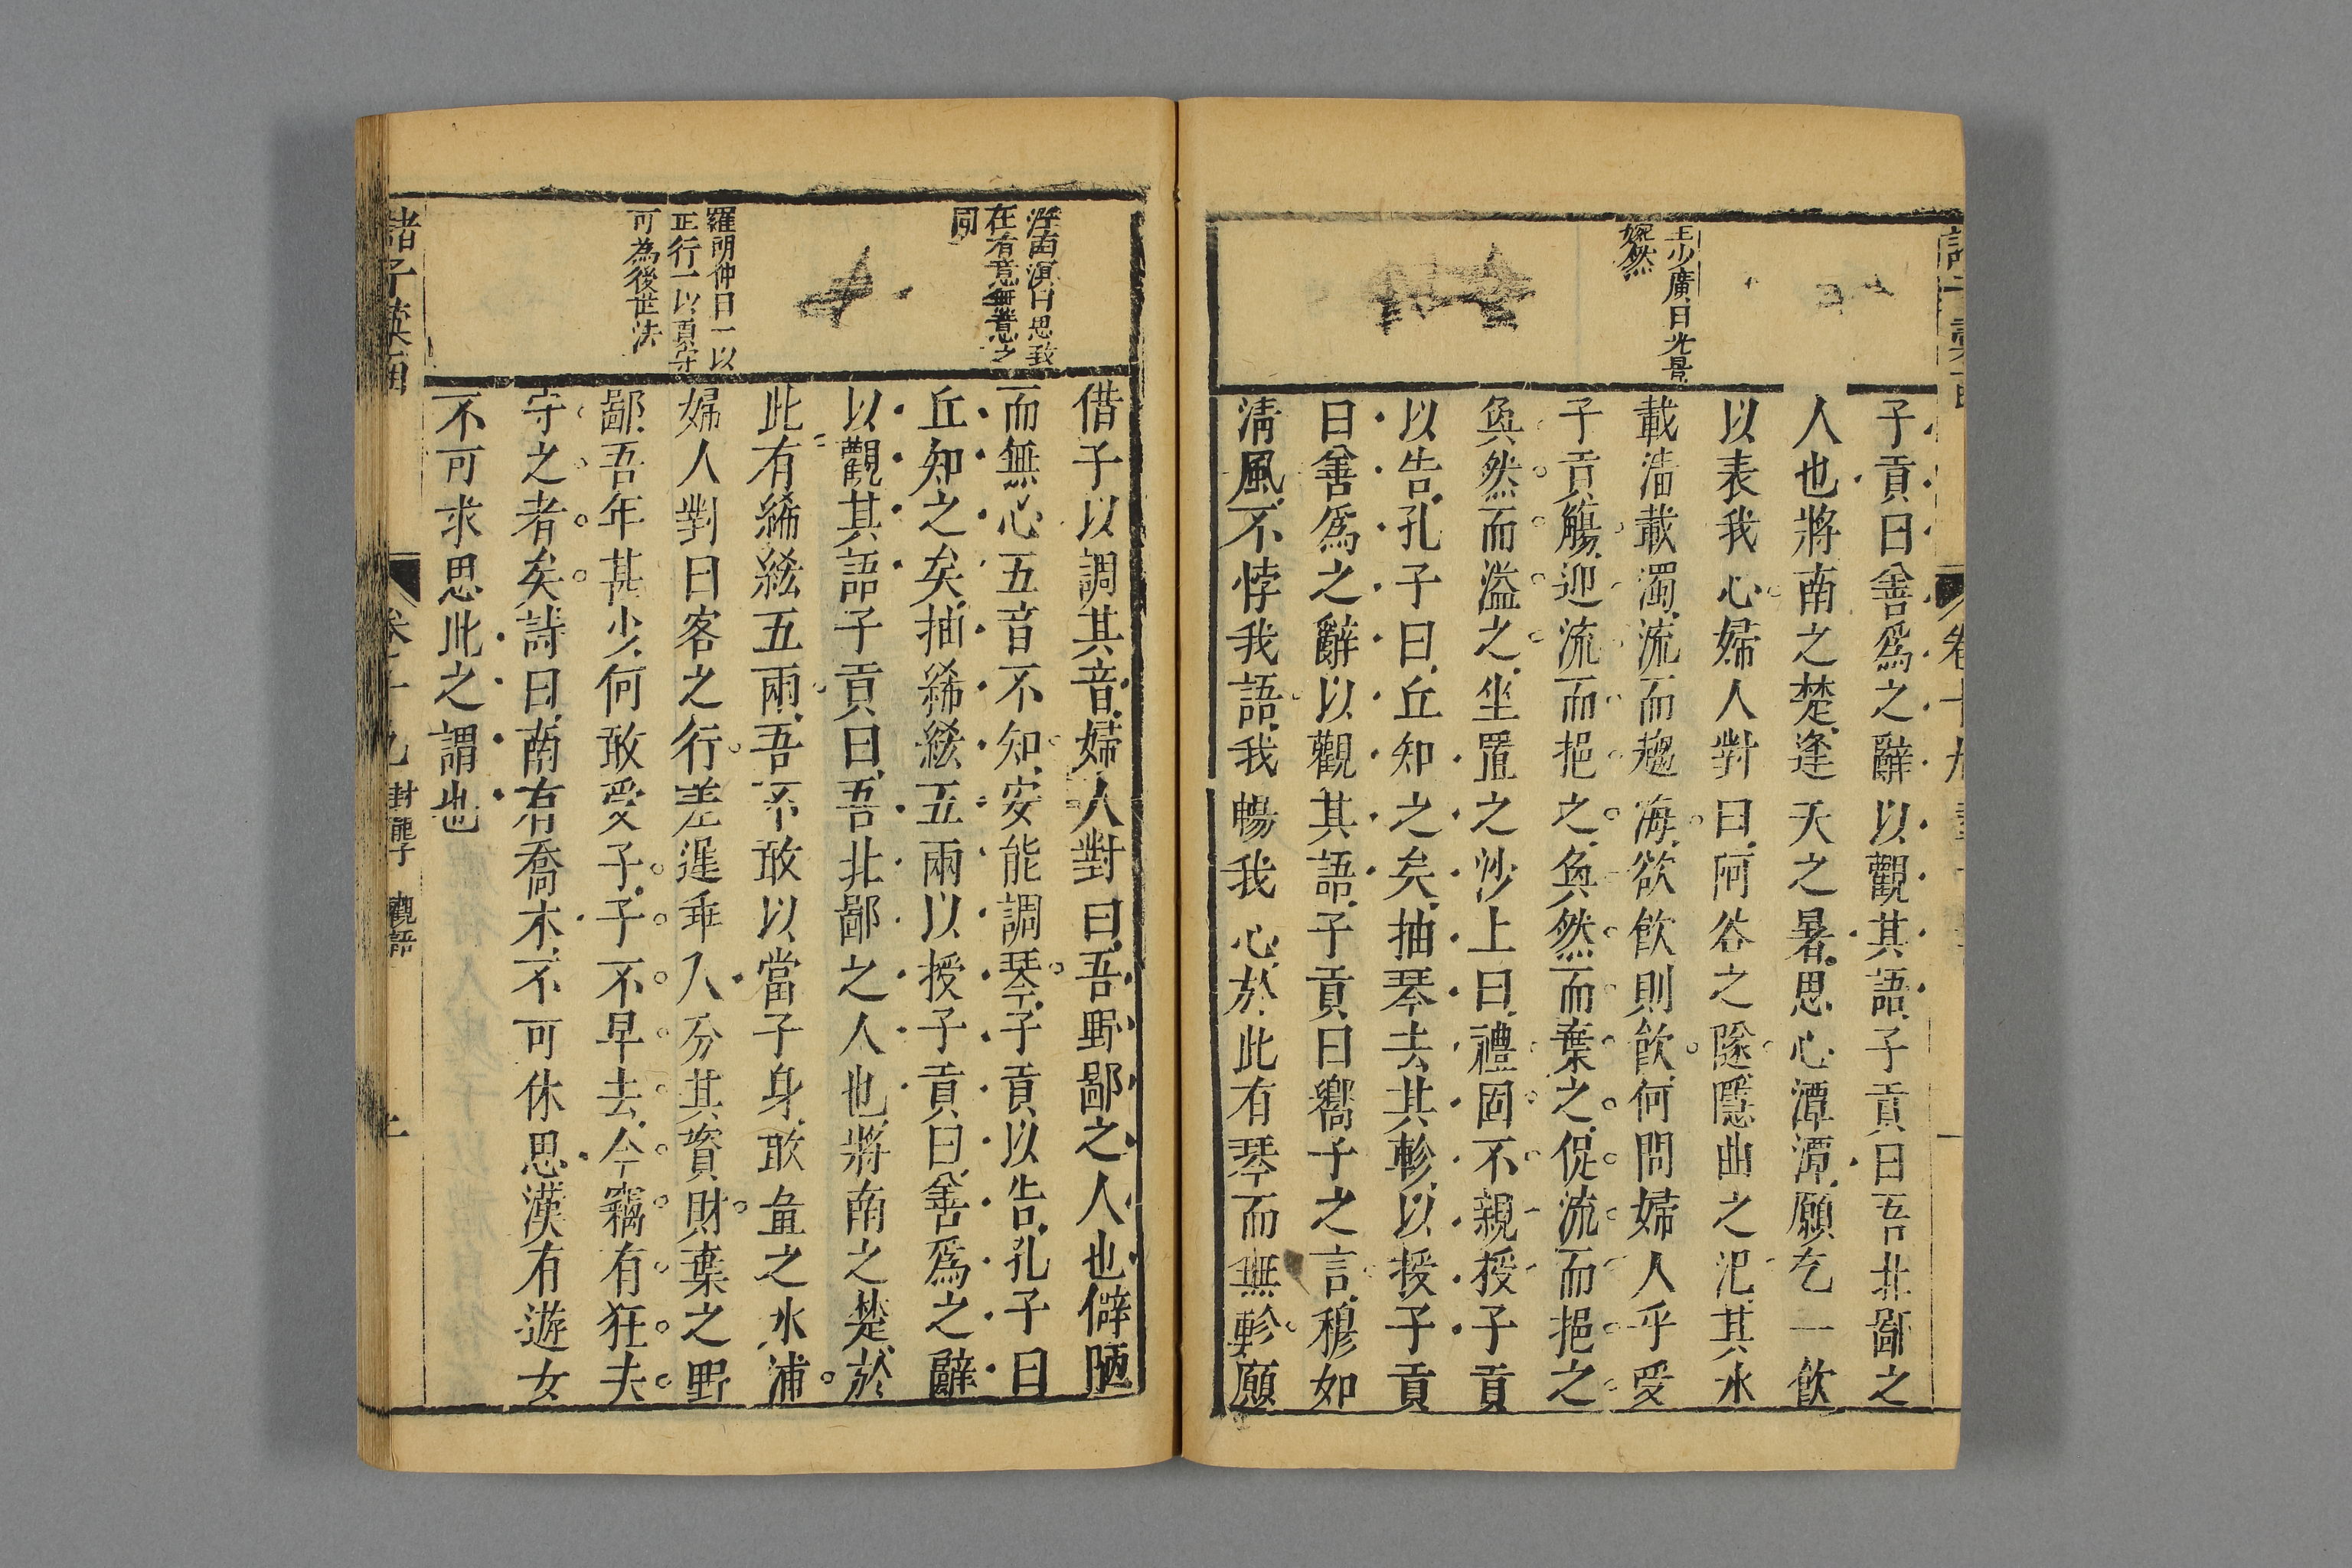 王少廣曰光景
婉然
子貢曰善爲之辭以觀其語子貢曰吾北鄙之
人也將南之楚逢天之暑思心潭潭願乞一飲
以表我心婦人對曰阿谷之隧隱曲之汜其水
載清載濁流而趨海欲飲則飲何問婦人乎受
子貢觴迎流而挹之奐然而棄之促流而挹之
奐然而溢之坐置之沙上曰禮固不親授子貢
以告孔子曰丘知之矣抽琴去其軫以授子貢
曰善爲之辭以觀其語子貢曰嚮子之言穆如
清風不悖我語我暢我心於此有琴而無軫願
汪南溟曰思致
在有意無意之
間
羅明仲曰一以
正行一以貞守
可為後世法
借子以調其音婦人對曰吾野鄙之人也僻陋
而無心五音不知安能調琴子貢以告孔子曰
丘知之矣抽絺綌五兩以授子貢曰善爲之辭
以觀其語子貢曰吾北鄙之人也將南之楚於
此有絺綌五兩吾不敢以當子身敢置之水浦
婦人對曰客之行差遲乖人分其資財棄之野
鄙吾年甚少何敢受子子不早去今竊有狂夫
守之者矣詩曰南有喬木不可休思漢有遊女
不可求思此之謂也
卷十九